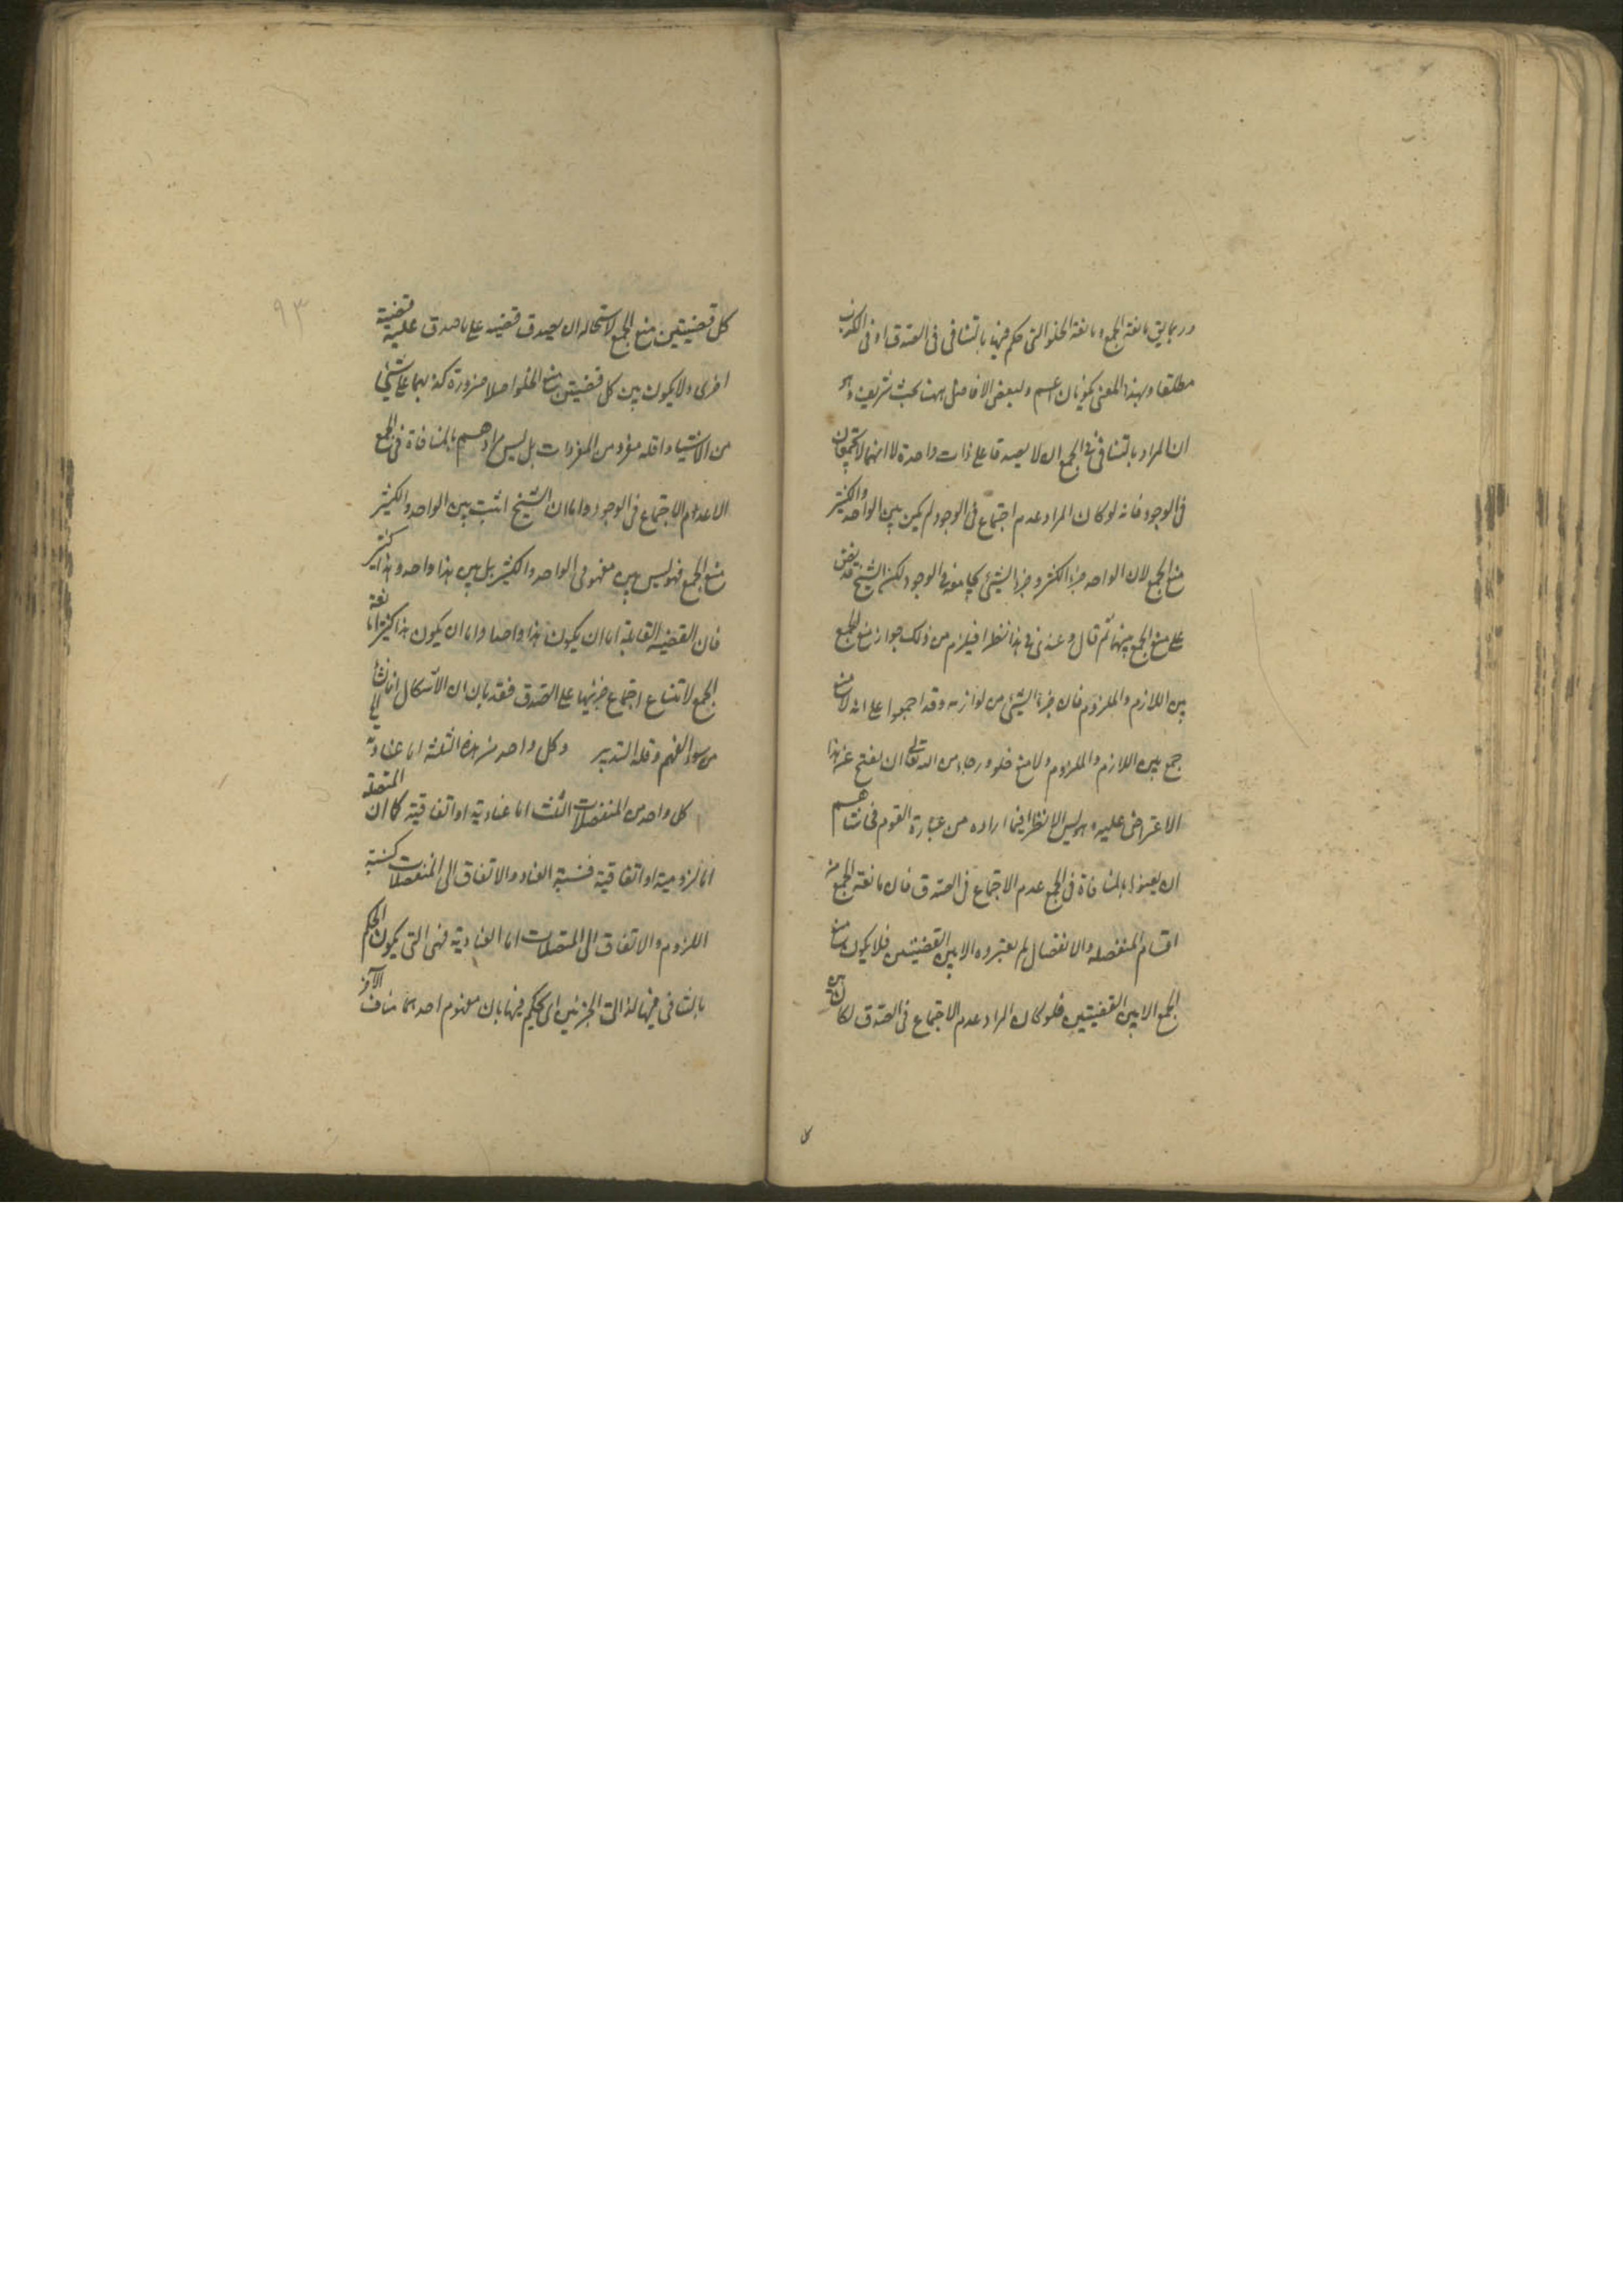 وربما يق مانعة الجمع ومانعة الخلو التى حكم فيها بالتنافى فى الصدق او فى الكذب
مطلقا وبهذا المعنى يكونان اعم ولبعض الافاضل ههنا بحث شريف وهو
ان المراد بالتنافى فى الجمع ان لا يصدقا على ذات واحدة لا انهما لا يجتمعان
فى الوجود فانه لو كان المراد عدم اجتماع فى الوجود لم يكن بين الواحد والكثير
منع الجمع لان الواحد جزء الكثير وجزء الشيئ يجامعه فى الوجود لكن الشيخ قد نص
على منع الجمع بينهما ثم قال وعندى فى هذا نظر اذ يلزم من ذلك جواز منع الجمع
بين اللازم والملزوم فان جزء الشيئ من لوازمه وقد اجمعوا على انه لا منع
جمع بين اللازم والملزوم ولا منع خلو ورجاء من الله تعالى ان يفتح عنه هذا
الاعتراض عليه وهو ليس الا نظرا فيما اراده من عبارة القوم فحاشاهم
ان يعينوا بالمنافاة فى الجمع عدم الاجتماع فى الصدق فان مانعة الجمع من
اقسام المنفصله والانفصال لم يعتبروه الا بين القضيتين فلا يكون منع
الجمع الا بين القضيتين فلو كان المراد عدم الاجتماع فى الصدق لكان بين
كل قضيتين منع الجمع لاستحاله ان يصدق قضيه على ما صدق عليه قضية
اخرى ولا يكون بين كل قضيتين منع الخلو اصلا ضرورة كذبهما على شيئ
من الاشياء واقله مفرد من المفردات بل ليس مرادهم بالمنافاة فى الجمع
الا عدم الاجتماع فى الوجود واما ان الشيخ اثبت بين الواحد والكثير
منع الجمع فهو ليس بين مفهومى الواحد والكثير بل بين هذا واحد وهذا كثير
فان القضيه القايلة اما ان يكون هذا واحدا واما ان يكون هذا كثيرا مانعة
الجمع لامتناع اجتماع جزئيها على الصدق فقد بان ان الاشكال انما نشأ
من سوء الفهم وقله التدبر وكل واحد من هذه الثلثة اما عنادية
كل واحد من المنفصلات الثلث اما عنادية او اتفاقية كما ان المتصلة
اما لزومية او اتفاقية فنسبة العناد والاتفاق الى المنفصلات كنسبة
اللزوم والاتفاق الى المتصلات اما العنادية فهى التى يكون الحكم
بالتنافى فيها لذاتى الجزئين اى يحكم فيها بان مفهوم احدهما مناف الآخر
٩٣